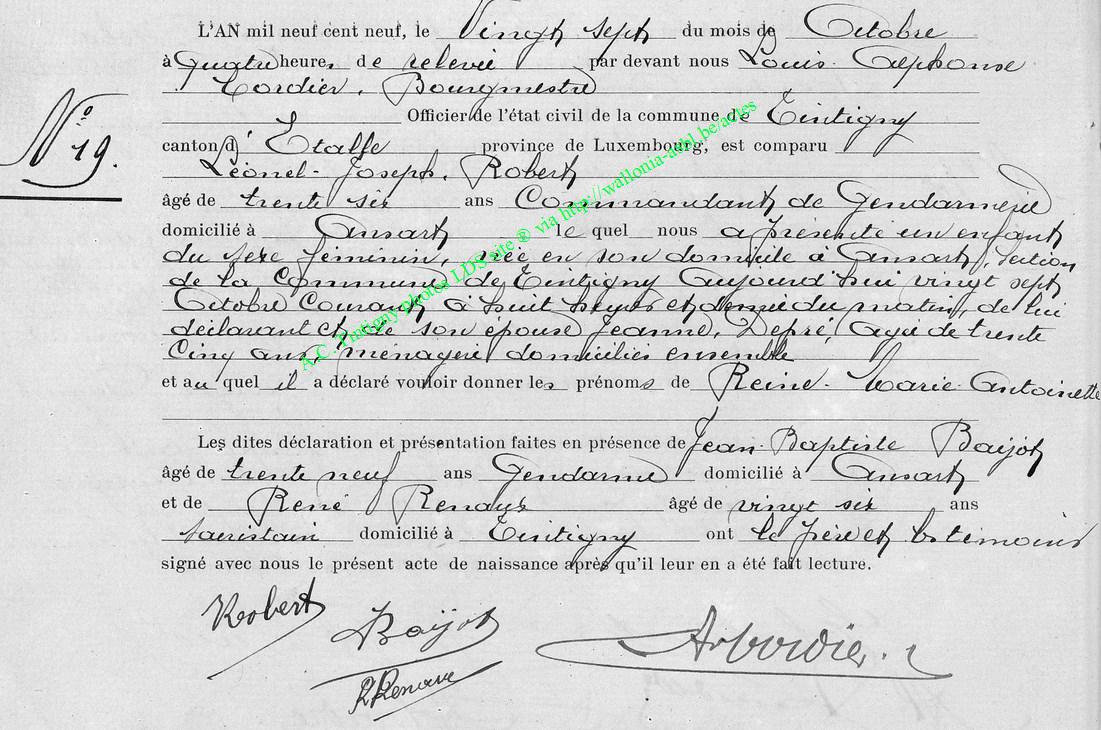 L'AN mil neuf cent neuf, le Vingt sept du mois de Octobre
à Quatre heures de relevée par devant nous Louis Alphonse
Cordier, Bourgmestre
Officier de l'état civil de la commune de Tintigny
canton d' Etalle province de Luxembourg, est comparu
N° 19.
Léonel Joseph, Robert
âgé de trente six ans Commandant de Gendarmerie
domicilié à Ansart le quel nous a présenté un enfant
du sexe féminin, née en son domicile à Ansart, section
de la Commune de Tintigny aujourd'hui vingt sept
Octobre Courant à huit heures et demie du matin, de lui
déclarant et de son épouse Jeanne, Depré, agée de trente
Cinq ans, ménagère domiciliés ensemble
et au quel il a déclaré vouloir donner les prénoms de Reine Marie Antoinette
Les dites déclaration et présentation faites en présence de Jean Baptiste Baijot
âgé de trente neuf ans Gendarme domicilié à Ansart
et de René Renaux âgé de vingt six ans
sacristain domicilié à Tintigny ont le père et les témoins
signé avec nous le présent acte de naissance après qu'il leur en a été fait lecture.
Robert
Baijot
R Renaux
A Cordier
A.C. Tintigny photos LDS site ® via http://wallonia-asbl.be/actes